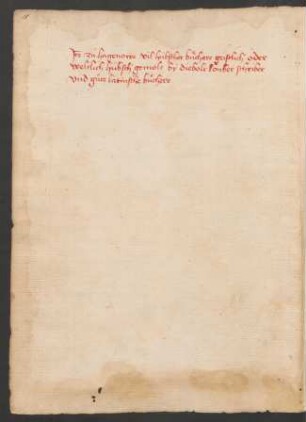 Jtem zu hagenow vil hubscher bücher geistlich oder
weltlich hübsch gemolt by diebolt louber schriber
vnd gute latinsche bücher